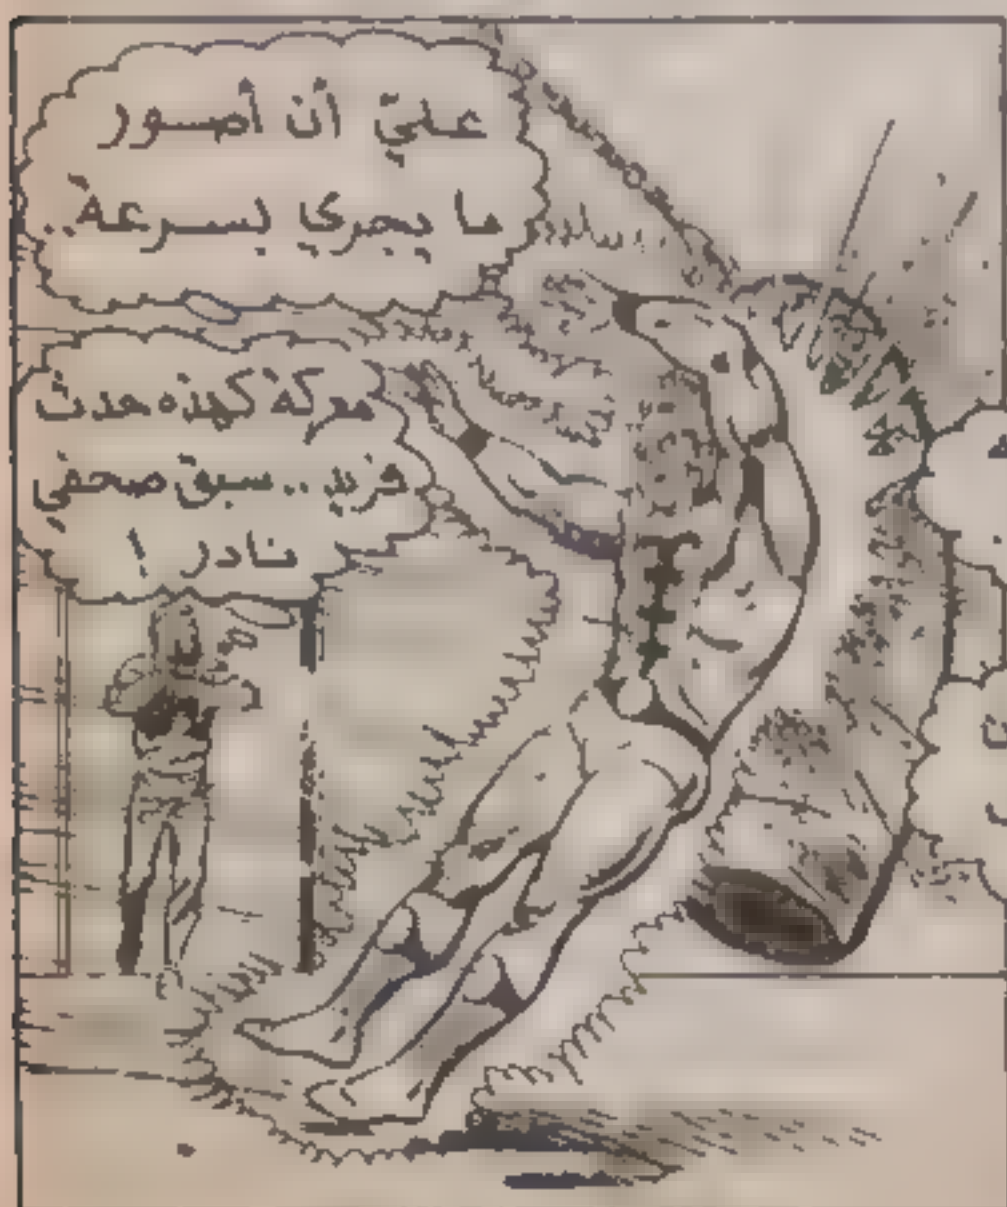 عليّ أن أصور
ما يجري بسرعة..
معركة كهذه حدث
فريد.. سبق صحفي
نادر !